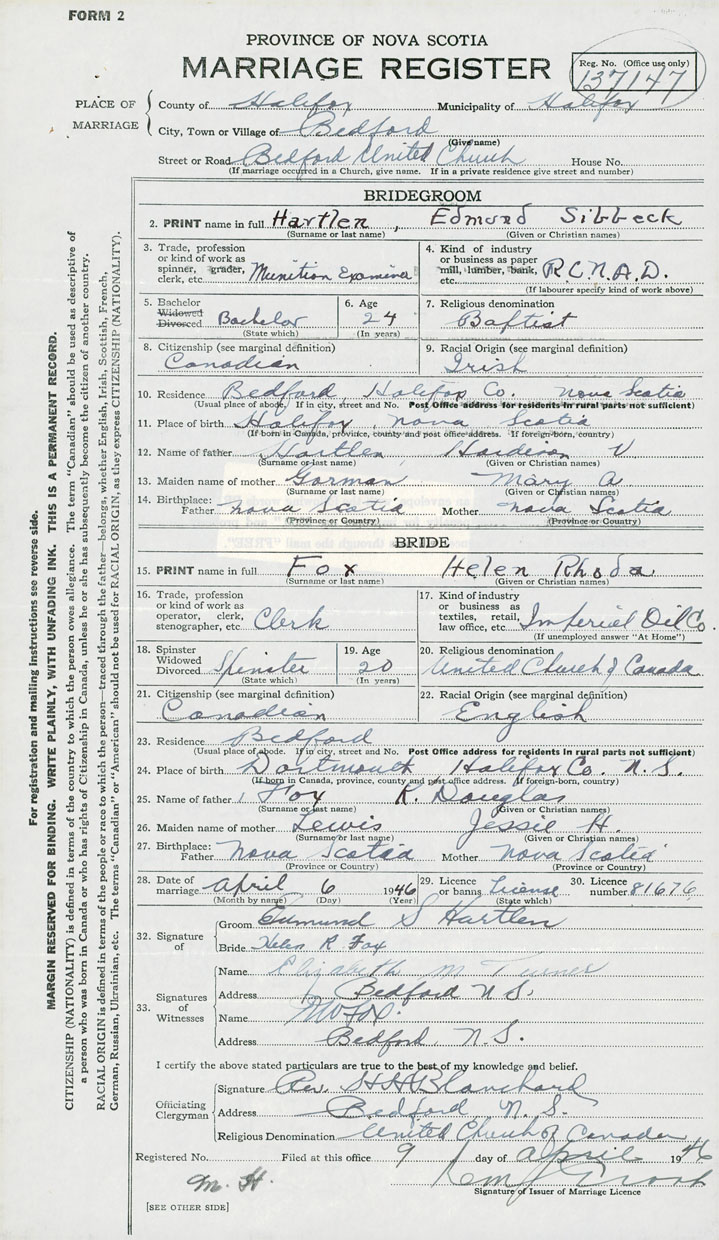 FORM 2
PROVINCE OF NOVA SCOTIA
MARRIAGE REGISTER
Reg. No. (Office use only)
137147
PLACE OF MARRIAGE
County of Halifax Municipality of Halifax
City, Town or Village of Bedford
(Give name)
Street or Road Bedford United Church House No.
(If marriage occurred in a Church, give name. If in a private residence give street and number)
BRIDEGROOM
2. PRINT name in full Hartlen, Edmund Sibbeck
(Surname or last name) (Given or Christian names)
3. Trade, profession or kind of work as spinner, grader, clerk, etc. Munition Examiner
4. Kind of industry or business as paper mill, lumber, bank, etc. R.C.N.A.D.
(If labourer specify kind of work above)
5. Bachelor Widowed Divorced Bachelor
(State which)
6. Age 24
(In years)
7. Religious denomination
Baptist
8. Citizenship (see marginal definition)
Canadian
9. Racial Origin (see marginal definition)
Irish
10. Residence Bedford, Halifax Co. Nova Scotia
(Usual place of abode. If in city, street and No. Post Office address for residents in rural parts not sufficient)
11. Place of birth Halifax, Nova Scotia
(If born in Canada, province, county and post office address. If foreign-born, country)
12. Name of father Hartlen, Harderson V
(Surname or last name) (Given or Christian names)
13. Maiden name of mother Gorman Mary A
(Surname or last name) (Given or Christian names)
14. Birthplace: Father Nova Scotia Mother Nova Scotia
(Province or Country) (Province or Country)
BRIDE
15. PRINT name in full Fox Helen Rhoda
(Surname or last name) (Given or Christian names)
16. Trade, profession or kind of work as operator, clerk, stenographer, etc. Clerk
17. Kind of industry or business as textiles, retail, law office, etc. Imperial Oil Co.
(If unemployed answer "At Home")
18. Spinster Widowed Divorced Spinster
(State which)
19. Age 20
(In years)
20. Religious denomination
United Church of Canada
21. Citizenship (see marginal definition)
Canadian
22. Racial Origin (see marginal definition)
English
23. Residence Bedford
(Usual place of abode. If in city, street and No. Post Office address for residents in rural parts not sufficient)
24. Place of birth Dartmouth Halifax Co. N.S.
(If born in Canada, province, county and post office address. If foreign-born, country)
25. Name of father Fox R. Douglas
(Surname or last name) (Given or Christian names)
26. Maiden name of mother Lewis Jessie H.
(Surname or last name) (Given or Christian names)
27. Birthplace: Father Nova Scotia Mother Nova Scotia
(Province or Country) (Province or Country)
28. Date of marriage April 6 1946
(Month by name) (Day) (Year)
29. Licence or banns License
(State which)
30. Licence number 81676
32. Signature of
Groom Edmund S Hartlen
Bride Helen R Fox
33. Signatures of Witnesses
Name Elizabeth M Turner
Address Bedford N.S.
Name Fox
Address Bedford, N.S.
I certify the above stated particulars are true to the best of my knowledge and belief.
Officiating Clergyman
Signature Rev. H H Blanchard
Address Bedford N.S.
Religious Denomination United Church of Canada
Registered No. Filed at this office 9 day of April 1946
M. H.
Signature of Issuer of Marriage Licence
[SEE OTHER SIDE]
For registration and mailing instructions see reverse side.
MARGIN RESERVED FOR BINDING. WRITE PLAINLY, WITH UNFADING INK. THIS IS A PERMANENT RECORD.
CITIZENSHIP (NATIONALITY) is defined in terms of the country to which the person owes allegiance. The term "Canadian" should be used as descriptive of
a person who was born in Canada or who has rights of Citizenship in Canada, unless he or she has subsequently become the citizen of another country.
RACIAL ORIGIN is defined in terms of the people or race to which the person—traced through the father—belongs, whether English, Irish, Scottish, French,
German, Russian, Ukrainian, etc. The terms "Canadian" or "American" should not be used for RACIAL ORIGIN, as they express CITIZENSHIP (NATIONALITY).